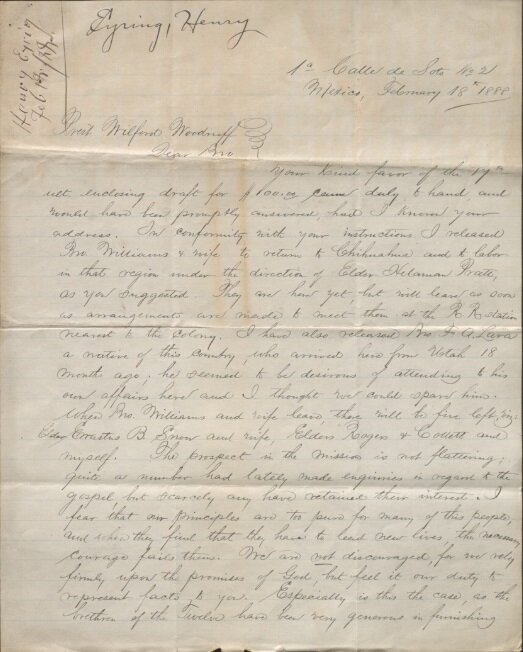 Eyring, Henry
Henry Eyring
Feb. 18/88.
1ª Calle de Soto No 2
Mexico, February 18th 1888
Prest Wilford Woodruff
Dear Bro
Your kind favor of the 17th
ult enclosing draft for $100.00 came duly to hand, and
would have been promptly answered, had I known your
address. In conformity with your instructions I released
Bro Williams & wife to return to Chihuahua and to labor
in that region under the direction of Elder Helaman Pratt,
as you suggested. They are here yet, but will leave as soon
as arrangements are made to meet them at the R.R. station
nearest to the colony. I have also released Bro. F. A. Lara
a native of this country, who arrived here from Utah 18
months ago; he seemed to be desirous of attending to his
own affairs here and I thought we could spare him.
When Bro. Williams and wife leave, there will be five left, viz:
Elder Erastus B. Snow and wife, Elders Rogers & Collett and
myself. The prospect in the mission is not flattering;
quite a number had lately made enquiries in regard to the
gospel, but scarcely any have retained their interest. I
fear that our principles are too pure for many of this people,
and when they find that they have to lead new lives, the necessary
courage fails them. We are not discouraged, for we rely
firmly upon the promises of God, but feel it our duty to
represent facts to you. Especially is this the case, as the
brethren of the Twelve have been very generous in furnishing